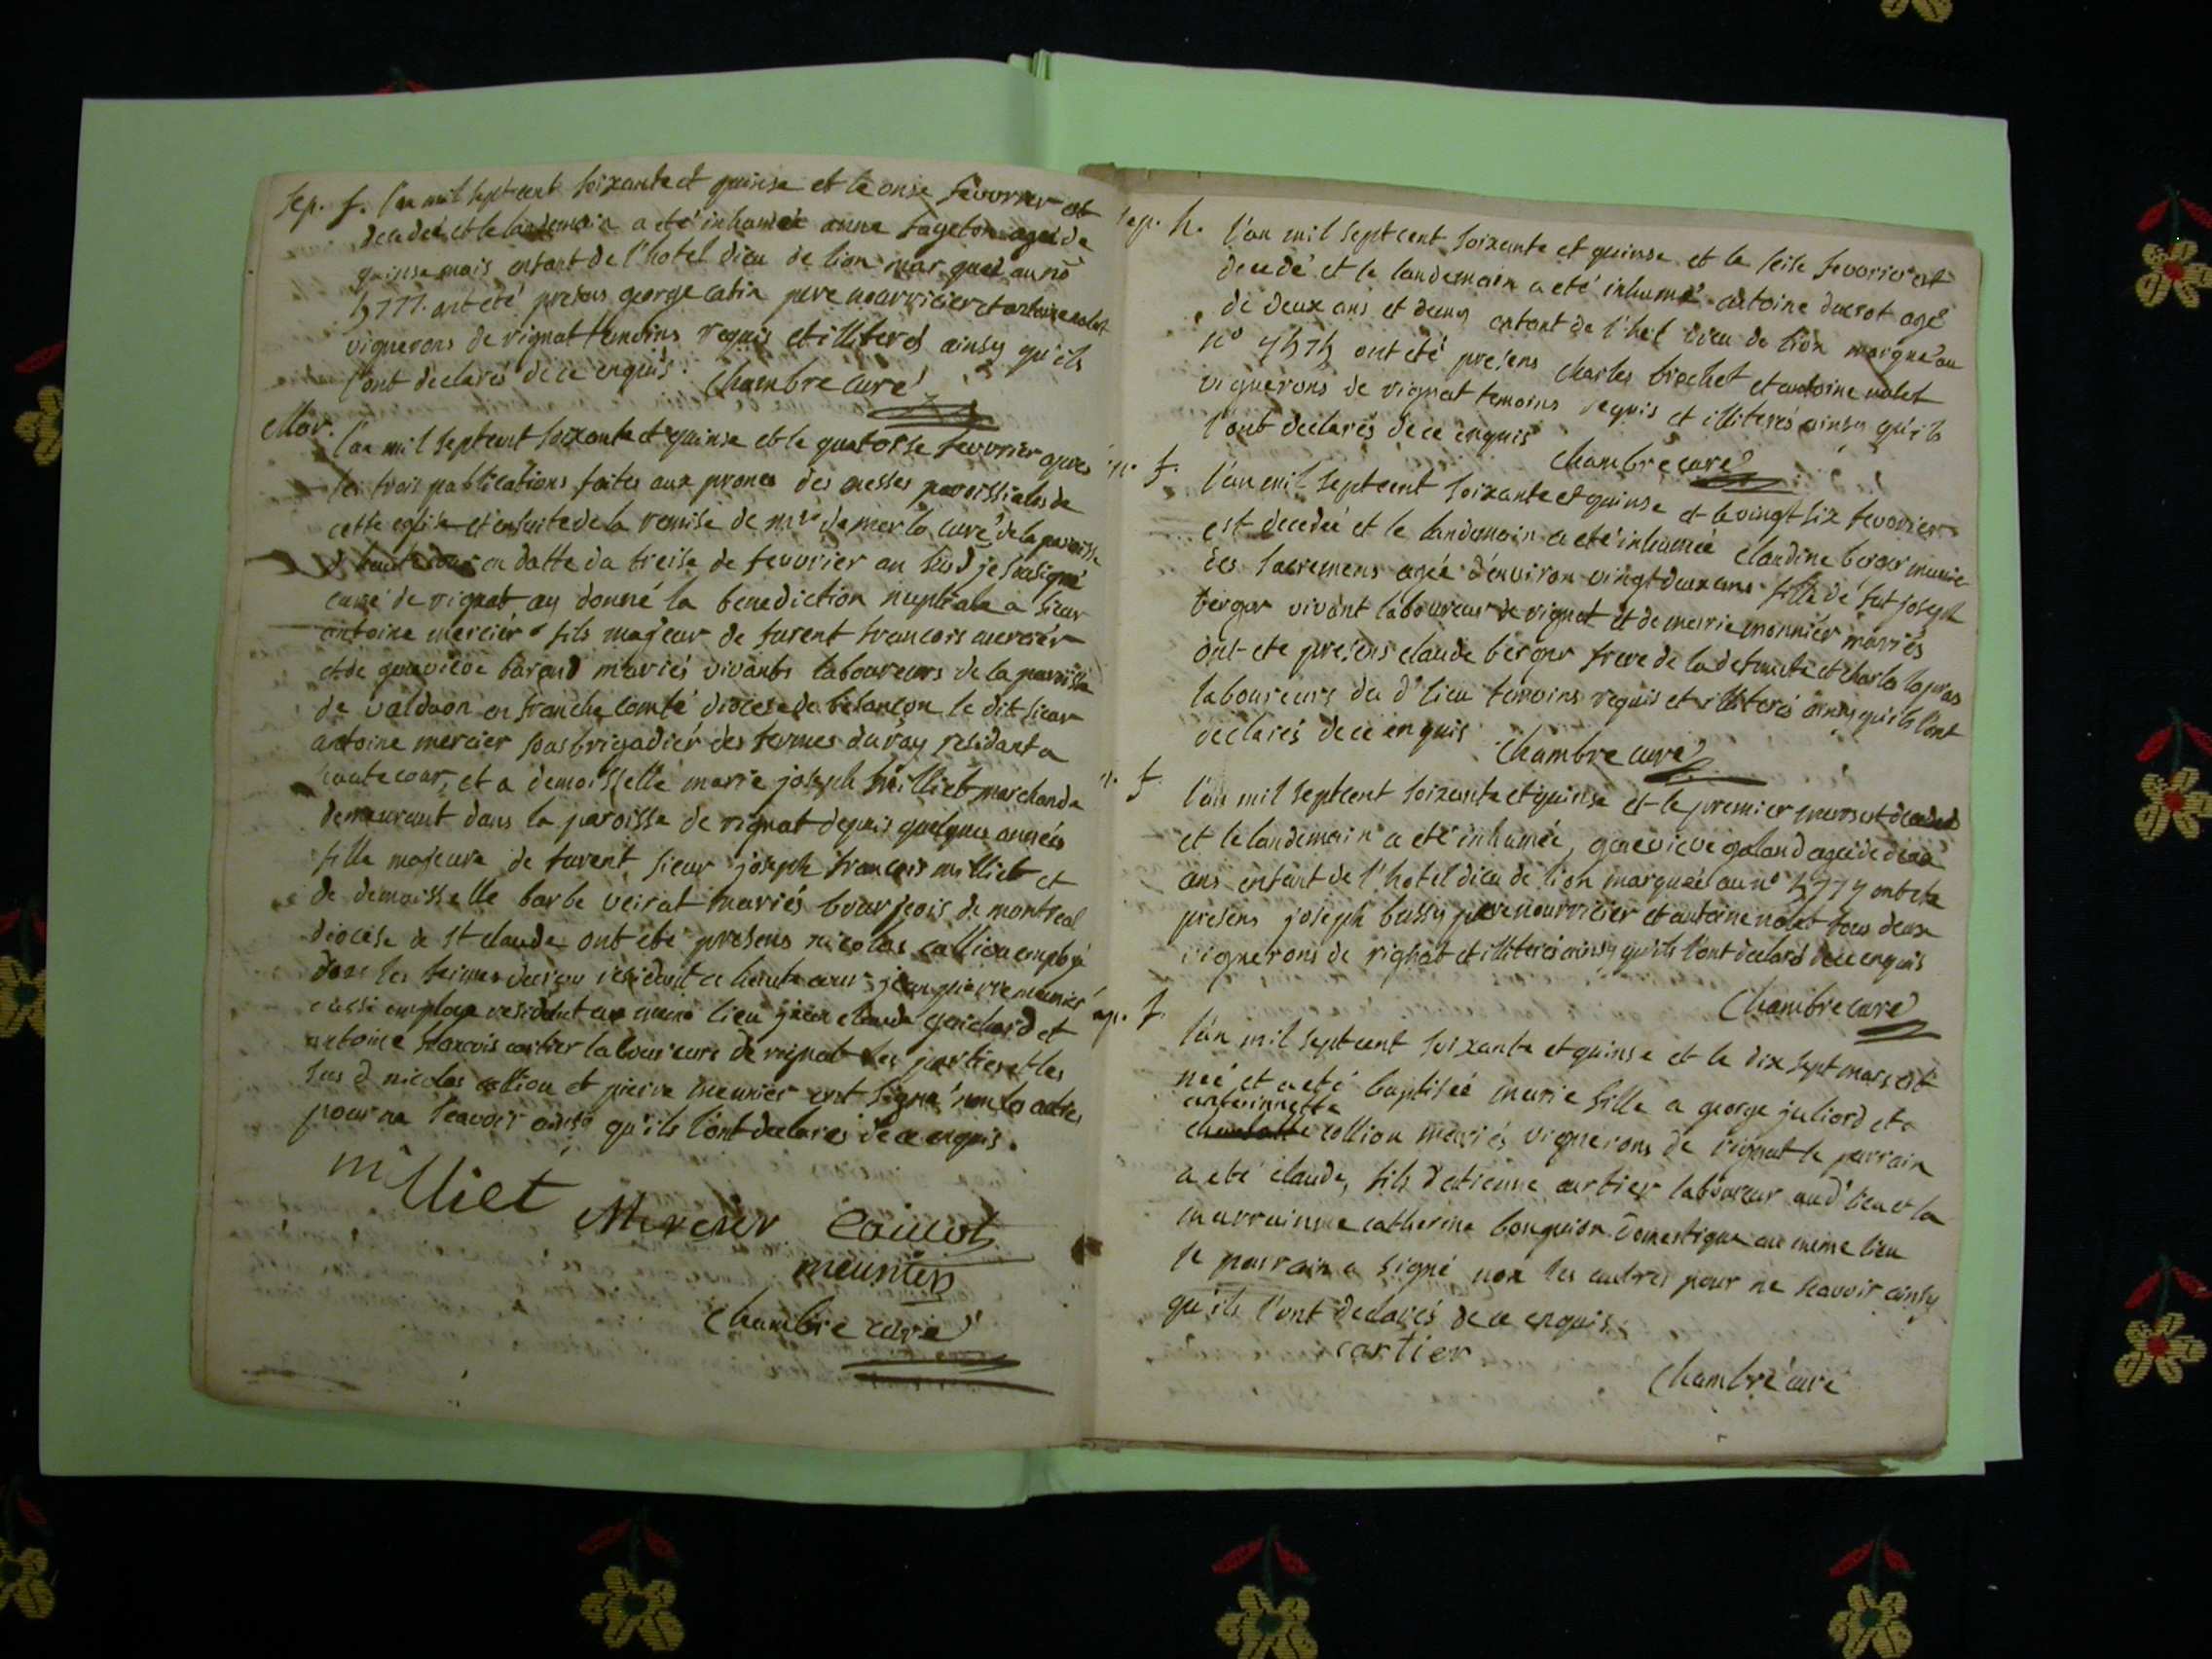 Sep. f. l'an mil sept cent soixante et quinse et le onse fevorier est
decedeé et le landemain a eté inhumeé anne fageton ageé de
quinse mois enfant de l'hotel dieu de lion marqueé au no
5777. ont eté presens george catin pere nourricier et antoine nolet
vignerons de rignat temoins requis et illiterés ainsy qu'ils
l'ont declarés de ce enquis. Chambre curé
Mar. l'an mil sept cent soixante et quinse et le quatorse fevorier apres
les trois publications faites aux prones des messes paroissiales de
cette eglise et ensuite de la remise de mre demerlo curé de la paroisse
d'hautecour en datte du treise de fevorier an susd je soussigné
curé de rignat ay donné la benediction nuptiale a sieur
antoine mercier fils majeur de furent francois mercier
et de genevieve baraud mariés vivants laboureurs de la paroisse
de valdaon en franche comté diocese de besancon le dit sieur
antoine mercier sous brigadier des fermes du roy residant a
hautecour, et a demoisselle marie joseph milliet marchande
demeurant dans la paroisse de rignat depuis quelques années
fille majeure de furent sieur joseph francois milliet et
de demoisselle barbe veirat mariés bourjeois de montreal
diocese de st claude ont eté presens nicolas callion employé
dans les fermes du roy residant a haute cour, jean pierre meunier
aussi employé residant au meme lieu jean claude guichard et
antoine francois cartier laboureurs de rignat les parties et les
sus d nicolas callion et pierre meunier ont signé non les autres
pour ne scavoir ainsy qu'ils l'ont declarés de ce enquis.
milliet Mercier
meunier
Chambre curé
Sep. h. l'an mil sept cent soixante et quinse et le seise fevorier est
decedé et le landemain a eté inhumé antoine ducrot agé
de deux ans et demy enfant de l'hel dieu de lion marqué au
no 4575 ont eté presens charles brochet et antoine nolet
vignerons de rignat temoins requis et illiterés ainsy qu'ils
l'ont declarés de ce enquis Chambre curé
f. l'an mil sept cent soixante et quinse et le vingt six fevorier
est decedeé et le landemain a eté inhumeé claudine berger munie
des sacremens ageé d'environ vingt deux ans fille de fut joseph
berger vivant laboureur de rignat et de marie monnier mariés
ont eté presens claude berger frere de la defuncte et charle lapras
laboureurs du d' lieu temoins requis et illiterés ainsy qu'ils l'ont
declarés de ce enquis Chambre curé
f. l'an mil sept cent soixante et quinse et le premier mars est decedeé
et le landemain a eté inhumeé, genevieve galand ageé de deux
ans enfant de l'hotel dieu de lion marqueé au no 5774 ont eté
presens joseph bussy pere nourricier et antoine nolet tous deux
vignerons de rignat et illiterés ainsy qu'ils l'ont declarés de ce enquis
Chambre curé
f. l'an mil sept cent soixante et quinse et le dix sept mars est
neé et a eté baptiseé marie fille a george juliard et a
antoinnette
collion mariés vignerons de rignat le parrain
a eté claude, fils d'etienne cartier laboureur aud' lieu et la
marrainne catherine bonguion domestique au meme lieu
le parrain a signé non les autres pour ne scavoir ainsy
qu'ils l'ont declarés de ce enquis.
cartier
Chambre curé